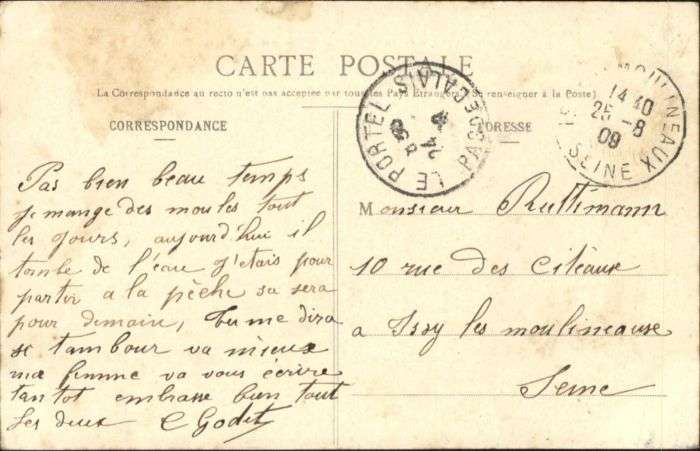 CARTE POSTALE
(La Correspondance au recto n'est pas acceptée par tous les Pays Étrangers) (Se renseigner à la Poste)
CORRESPONDANCE
ADRESSE
LE PORTEL PAS DE CALAIS
MOULINEAUX
14 40
25 - 8
09
SEINE
Pas bien beau temps
je mange des moules tout
les jours, aujourd'hui il
tombe de l'eau j'etais pour
partir a la pèche sa sera
pour demain, tu me dira
si tambour va mieux
ma femme va vous écrire
tantot embrasse bien tout
les deux C Godet
Monsieur Ruttimann
10 rue des Citéaux
a Issy les moulineause
Seine